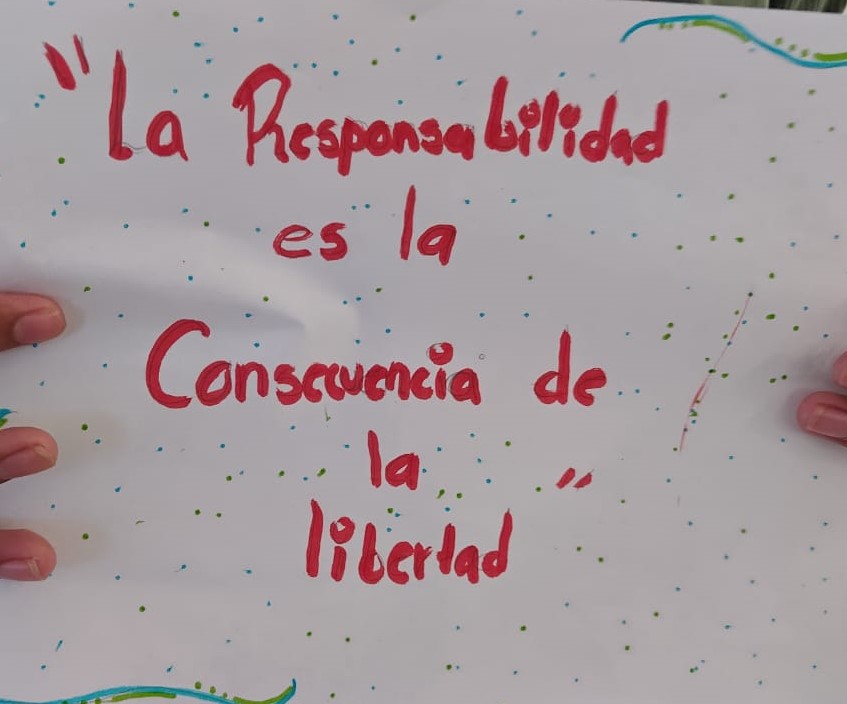 "La Responsabilidad
es la
Consecuencia de
la "
libertad